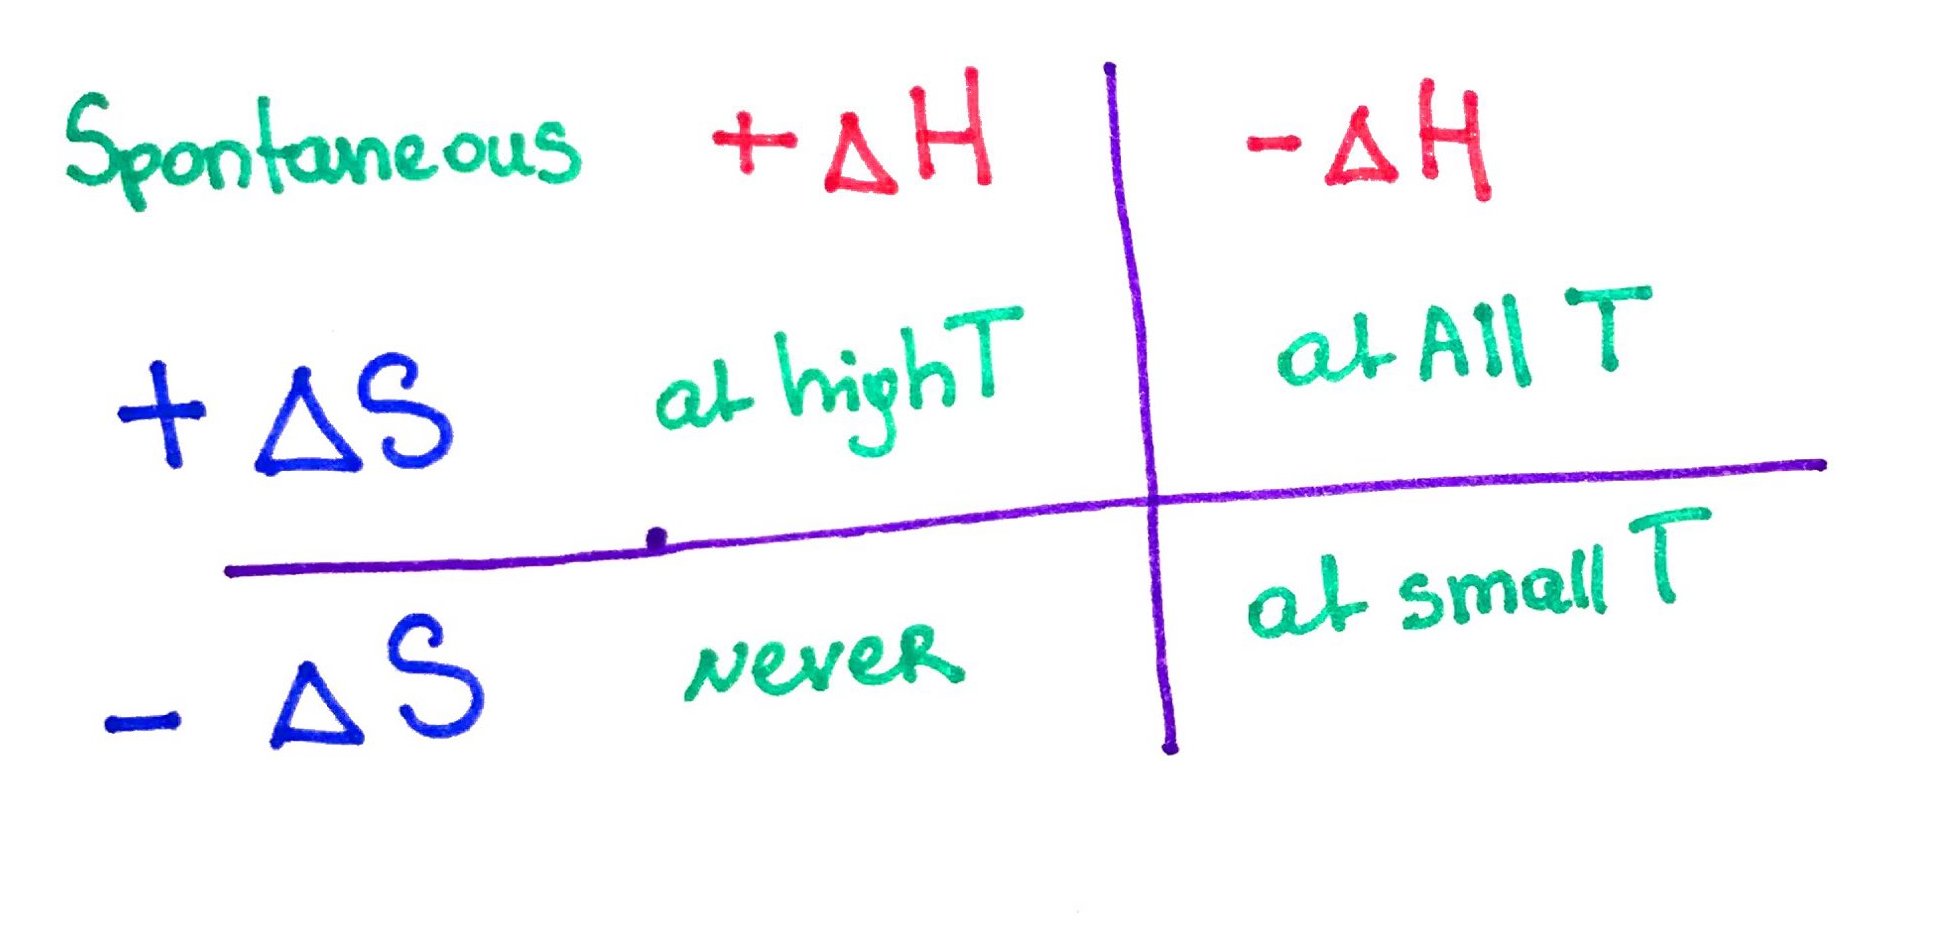 Spontaneous +ΔH -ΔH
+ ΔS at high T at All T
- ΔS never at small T